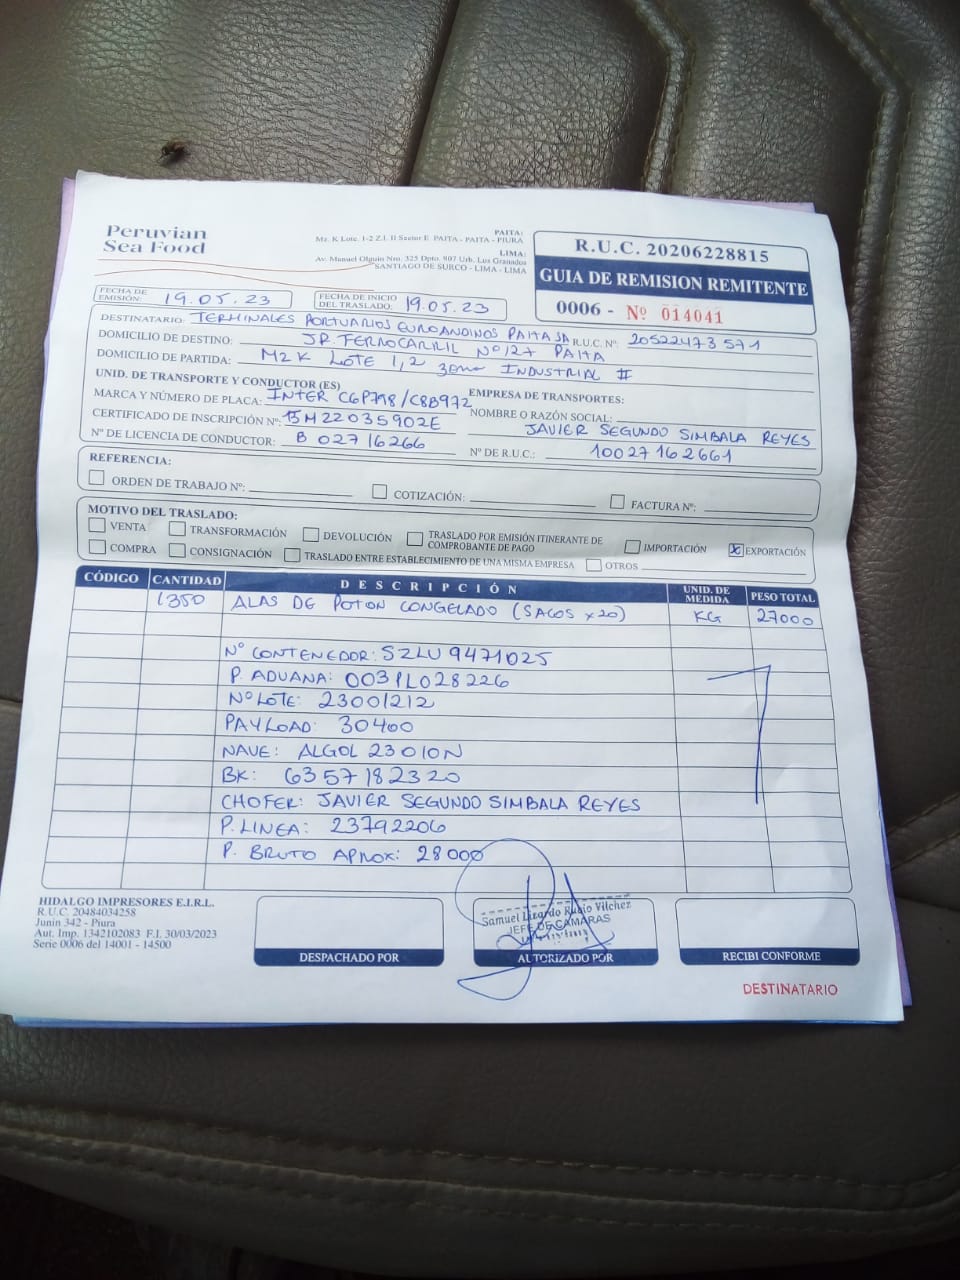 Peruvian
Sea Food
PAITA:
Mz. K Lote. 1-2 Z.I. II Sector E PAITA - PAITA - PIURA
LIMA:
Av. Manuel Olguin Nro. 325 Dpto. 907 Urb. Los Granados
SANTIAGO DE SURCO - LIMA - LIMA
R.U.C. 20206228815
GUIA DE REMISION REMITENTE
0006 - Nº 014041
FECHA DE EMISIÓN: 19.05.23
FECHA DE INICIO DEL TRASLADO: 19.05.23
DESTINATARIO: TERMINALES PORTUARIOS EUROANDINOS PAITA SA R.U.C. Nº: 20522473571
DOMICILIO DE DESTINO: JR. FERROCARRIL Nº 127 PAITA
DOMICILIO DE PARTIDA: MZ K LOTE 1,2 INDUSTRIAL II
UNID. DE TRANSPORTE Y CONDUCTOR (ES)
MARCA Y NÚMERO DE PLACA: INTER C6P798/C8B972
CERTIFICADO DE INSCRIPCIÓN Nº: 15M22035902E
Nº DE LICENCIA DE CONDUCTOR: B 02716266
EMPRESA DE TRANSPORTES:
NOMBRE O RAZÓN SOCIAL:
JAVIER SEGUNDO SIMBALA REYES
Nº DE R.U.C.: 10027162661
REFERENCIA:
ORDEN DE TRABAJO Nº: COTIZACIÓN: FACTURA Nº:
MOTIVO DEL TRASLADO:
VENTA TRANSFORMACIÓN DEVOLUCIÓN TRASLADO POR EMISIÓN ITINERANTE DE COMPROBANTE DE PAGO IMPORTACIÓN X EXPORTACIÓN
COMPRA CONSIGNACIÓN TRASLADO ENTRE ESTABLECIMIENTO DE UNA MISMA EMPRESA OTROS
CÓDIGO CANTIDAD DESCRIPCIÓN UNID. DE MEDIDA PESO TOTAL
1350 ALAS DE POTON CONGELADO (SACOS x20) KG 27000
Nº CONTENEDOR: SZLU 9471025
P. ADUANA: 003PL028226
Nº LOTE: 23001212
PAYLOAD: 30400
NAVE: ALGOL 23010N
BK: 6357182320
CHOFER: JAVIER SEGUNDO SIMBALA REYES
P. LINEA: 23792206
P. BRUTO APROX: 28000
HIDALGO IMPRESORES E.I.R.L.
R.U.C. 20484034258
Junin 342 - Piura
Aut. Imp. 1342102083 F.I. 30/03/2023
Serie 0006 del 14001 - 14500
DESPACHADO POR
Samuel Lizardo Rubio Vilchez
JEFE DE CAMARAS
AUTORIZADO POR
RECIBI CONFORME
DESTINATARIO